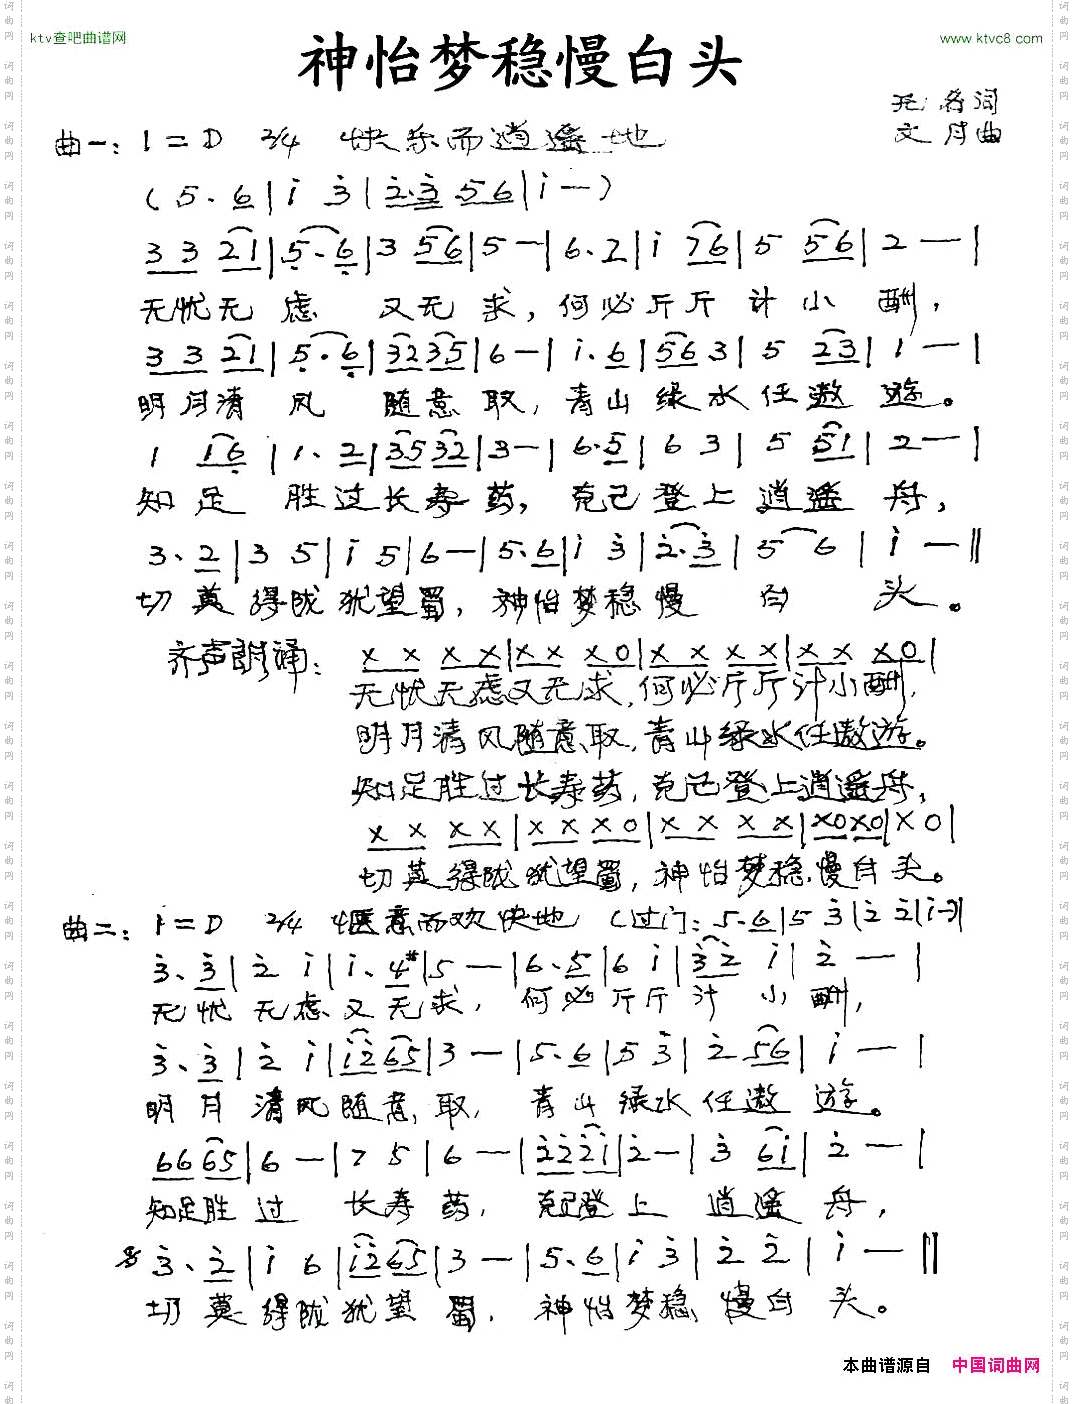 ktv查吧曲谱网
www.ktvc8.com
神怡梦稳慢白头
无名词
文月曲
曲一：1=D 2/4 快乐而逍遥地
(5. 6|i 3|2.3 56|i —)
3 3 21|5. 6|3 56|5 —|6. 2|i 76|5 56|2 —|
无忧无虑 又无求，何必斤斤计小酬，
3 3 21|5. 6|3235|6 —|i. 6|563|5 23|1 —|
明月清风 随意取，青山绿水任遨游。
1 16|1. 2|3532|3 —|6. 5|6 3|5 51|2 —|
知足 胜过长寿药，克己登上逍遥舟，
3. 2|3 5|i 5|6 —|5. 6|i 3|2. 3|5 6|i —‖
切莫得陇犹望蜀，神怡梦稳慢 白 头。
齐声朗诵：X X X X|X X X 0|X X X X|X X X 0|
无忧无虑又无求，何必斤斤计小酬，
明月清风随意取，青山绿水任遨游。
知足胜过长寿药，克己登上逍遥舟，
X X X X|X X X 0|X X X X|X0X0|X 0|
切莫得陇犹望蜀，神怡梦稳慢白头。
曲二：1=D 2/4 惬意而欢快地（过门：5. 6|5 3|2 2|i —)|
3. 3|2 i|i. 4#|5 —|6. 5|6 i|32 i|2 —|
无忧无虑又无求，何必斤斤计小酬，
3. 3|2 i|i265|3 —|5. 6|5 3|2 56|i —|
明月清风随意取，青山绿水任遨游。
66 65|6 —|7 5|6 —|2221|2 —|3 6i|2 —|
知足胜过 长寿药，克己登上 逍遥舟，
3. 2|i 6|i265|3 —|5. 6|i 3|2 2|i —‖
切莫得陇犹望蜀，神怡梦稳慢白头。
本曲谱源自 中国词曲网